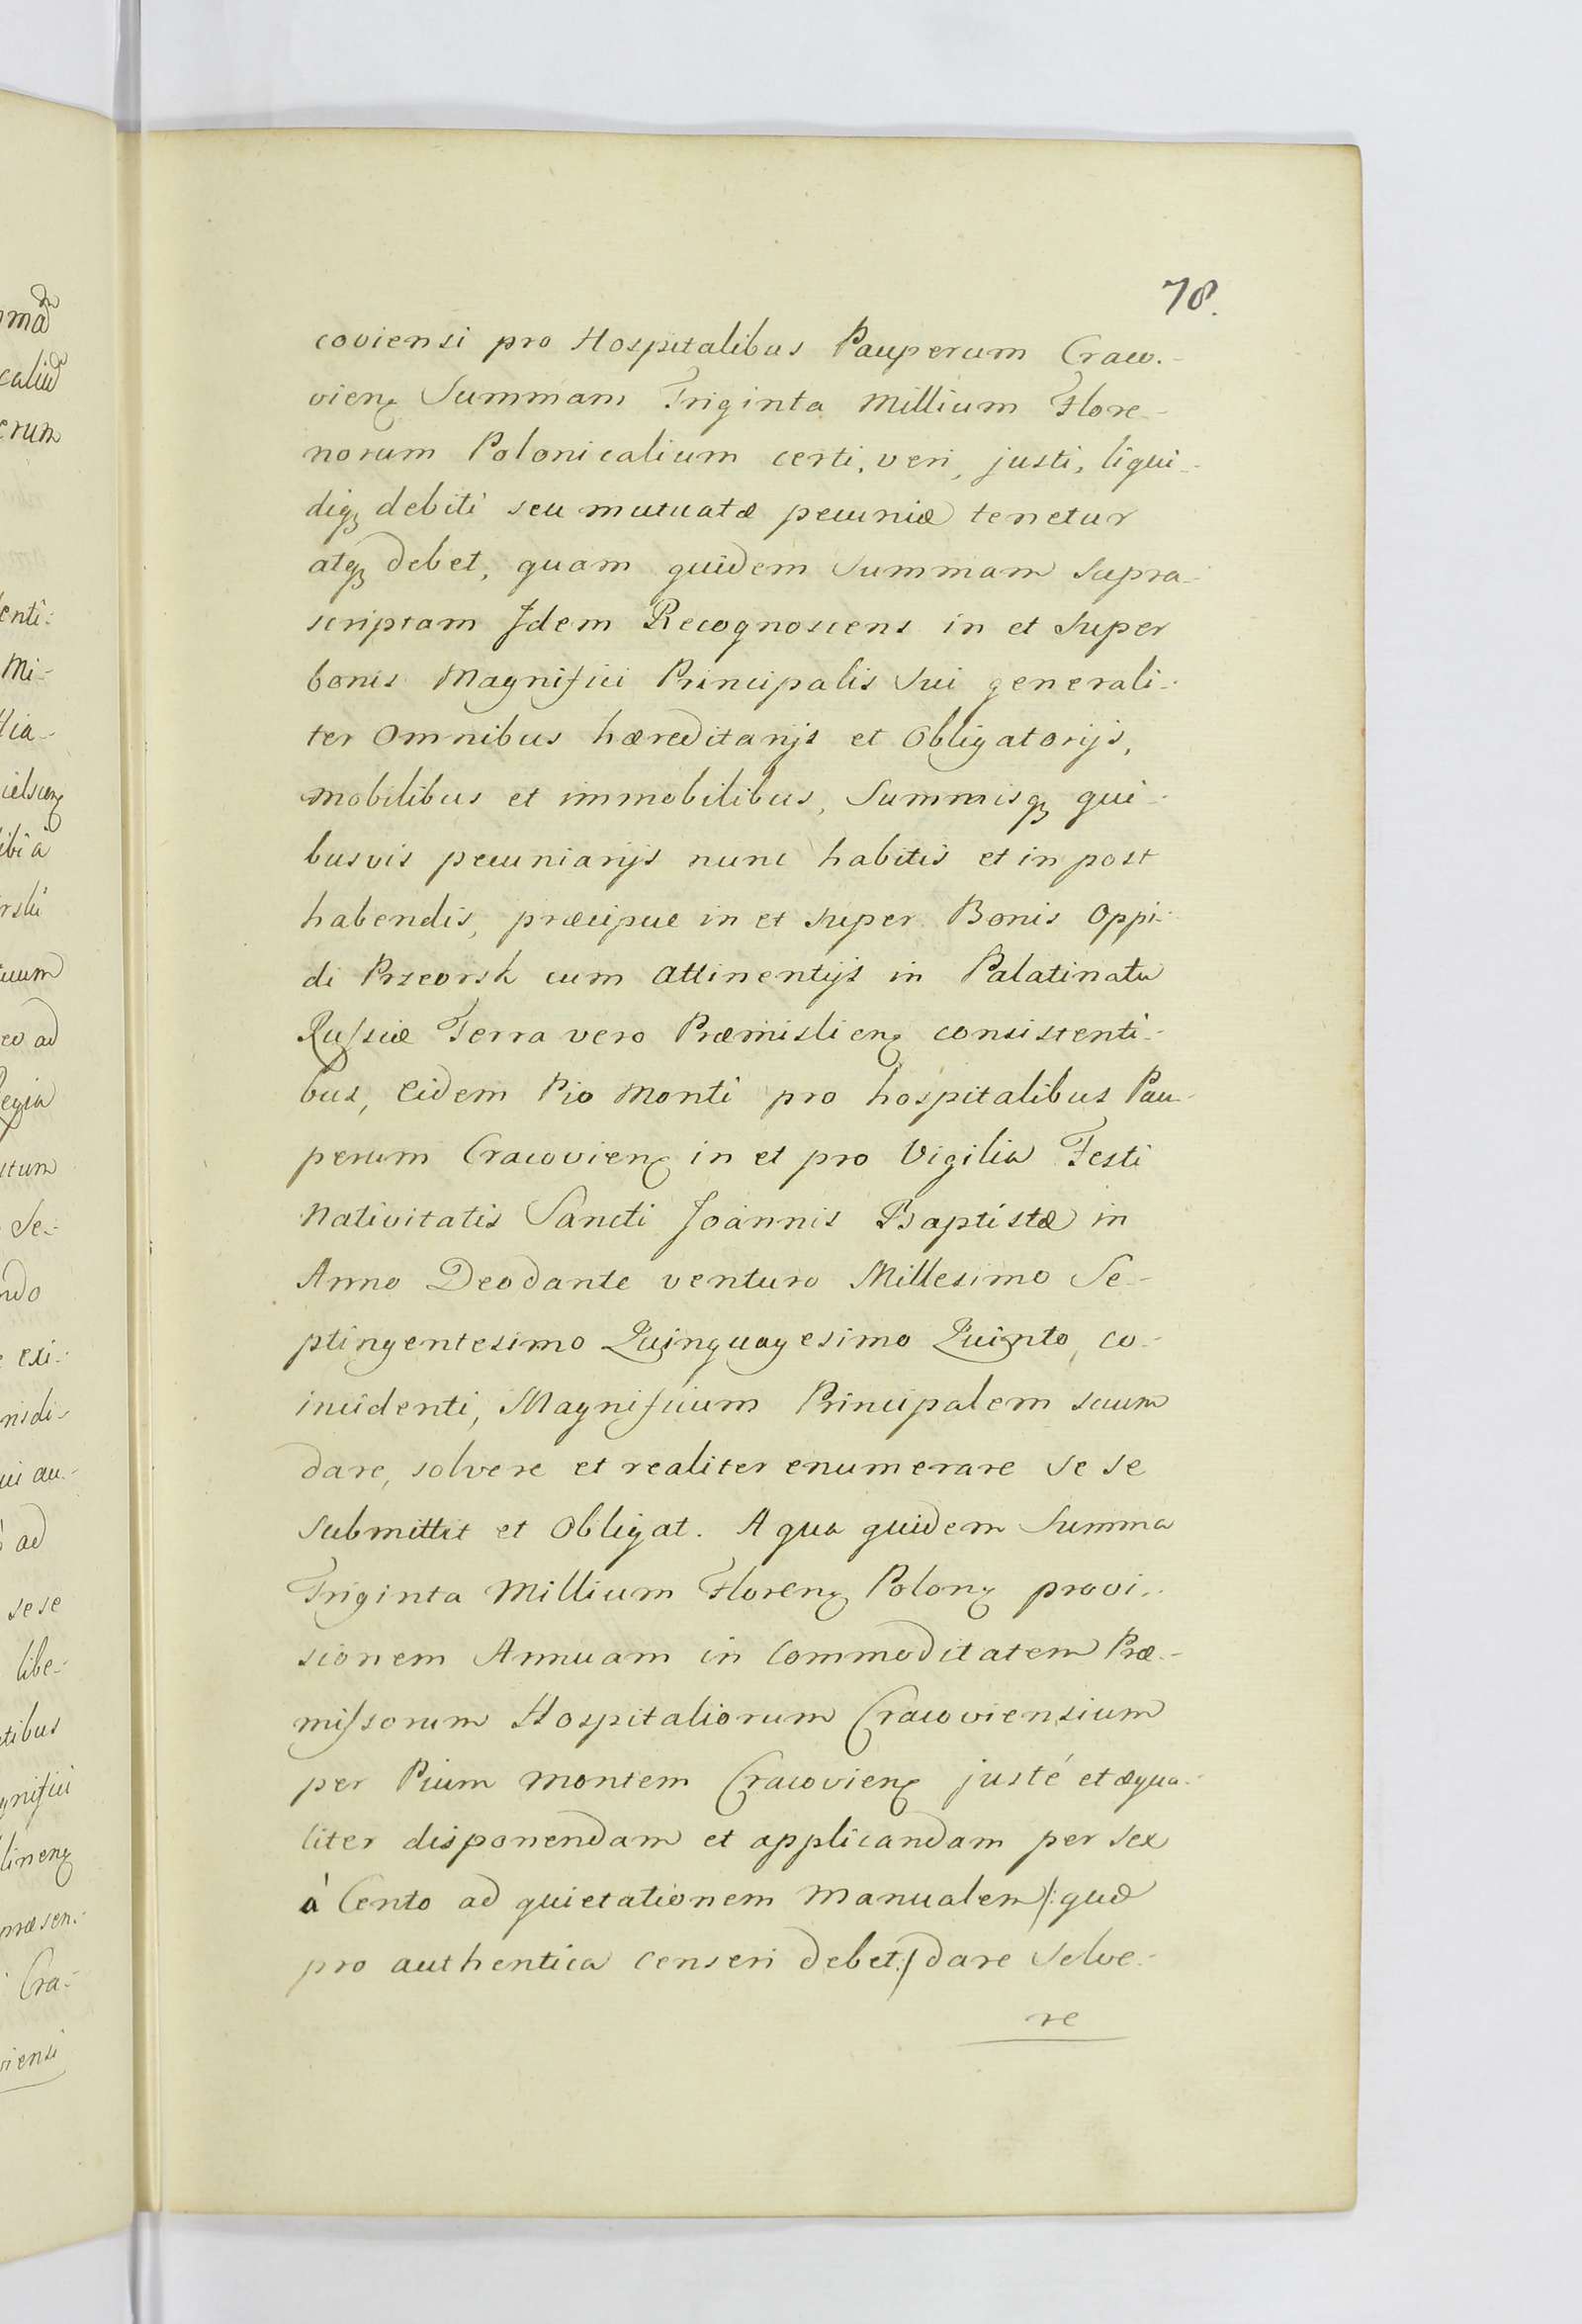 78.
coviensi pro Hospitalibus Pauperum Craco-
vienꝭ Summam Triginta Millium Flore-
norum Polonicalium certi, veri, justi, liqui-
diqꝫ debiti seu mutuatæ pecuniæ tenetur
atqꝫ debet, quam quidem Summam supra-
scriptam Idem Recognoscens in et super
bonis Magnifici Principalis Sui generali-
ter Omnibus hæreditarijs et Obligatorijs,
mobilibus et immobilibus, Summisqꝫ qui-
busvis pecuniarijs nunc habitis et in post
habendis, præcipue in et super Bonis Oppi-
di Przeorsk cum Attinentijs in Palatinatu
Russiæ Terra vero Præmislienꝭ consistenti-
bus, Eidem Pio Monti pro hospitalibus Pau-
perum Cracovienꝭ in et pro Vigilia Festi
Nativitatis Sancti Joannis Baptistæ in
Anno Deo dante venturo Millesimo Se-
ptingentesimo Quinquagesimo Quinto, co-
incidenti, Magnificum Principalem suum
dare, solvere et realiter enumerare se se
submittit et Obligat. A qua quidem Summa
Triginta Millium Florenꝭ Polonꝭ provi-
sionem Annuam in Commoditatem Præ-
missorum Hospitaliorum Cracoviensium
per Pium Montem Cracovienꝭ justé et æqua-
liter disponendam et applicandam per sex
à Cento ad quietationem Manualem /: quæ
pro authentica censeri debet :/ dare Solve-
re